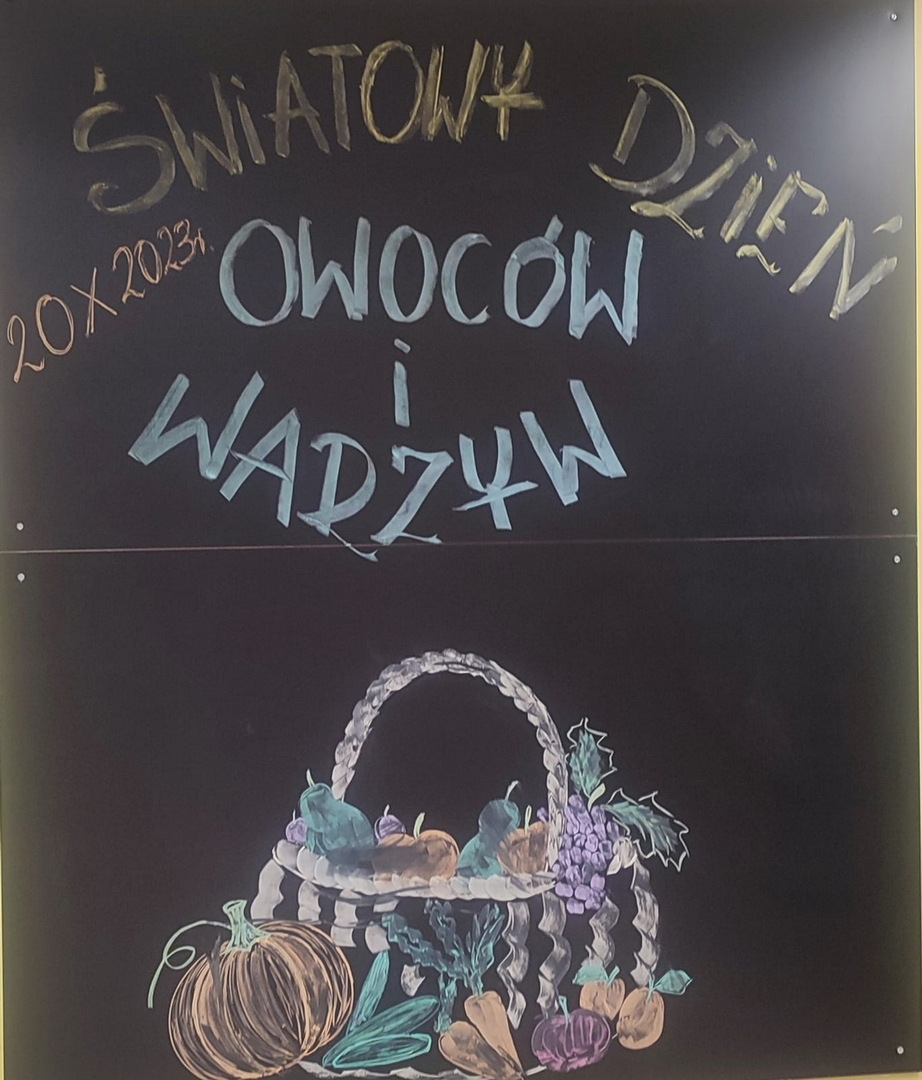 ŚWiATOWY DZiEŃ
20 X 2023r.
OWOCÓW
i
WADZYW